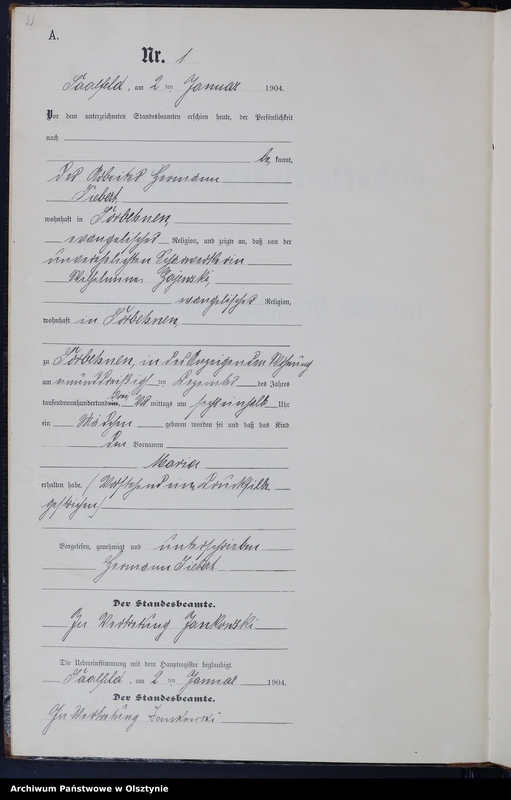 A.
Nr. 1
Saalfeld, am 2 ten Januar 1904.
Vor dem unterzeichneten Standesbeamten erschien heute, der Persönlichkeit
nach
be kannt,
der Arbeiter Hermann
Tiebert
wohnhaft in
evangelischer Religion, und zeigte an, daß von der
unverehelichten Scharwerkerin
Wilhelmine
evangelischer Religion,
wohnhaft in
zu in des Anzeigenden Wohnung
am neununddreißig ten Dezember des Jahres
tausendneunhundertund drei mittags um einhalb Uhr
ein Mädchen geboren worden sei und daß das Kind
den Vornamen
Maria
erhalten habe. (Vorstehend eine Drucksilbe
gestrichen)
Vorgelesen, genehmigt und unterschrieben
Hermann Tiebert
Der Standesbeamte.
In Vertretung Jankowski
Die Uebereinstimmung mit dem Hauptregister beglaubigt.
Saalfeld, am 2 ten Januar 1904.
Der Standesbeamte.
In Vertretung Jankowski
Archiwum Państwowe w Olsztynie